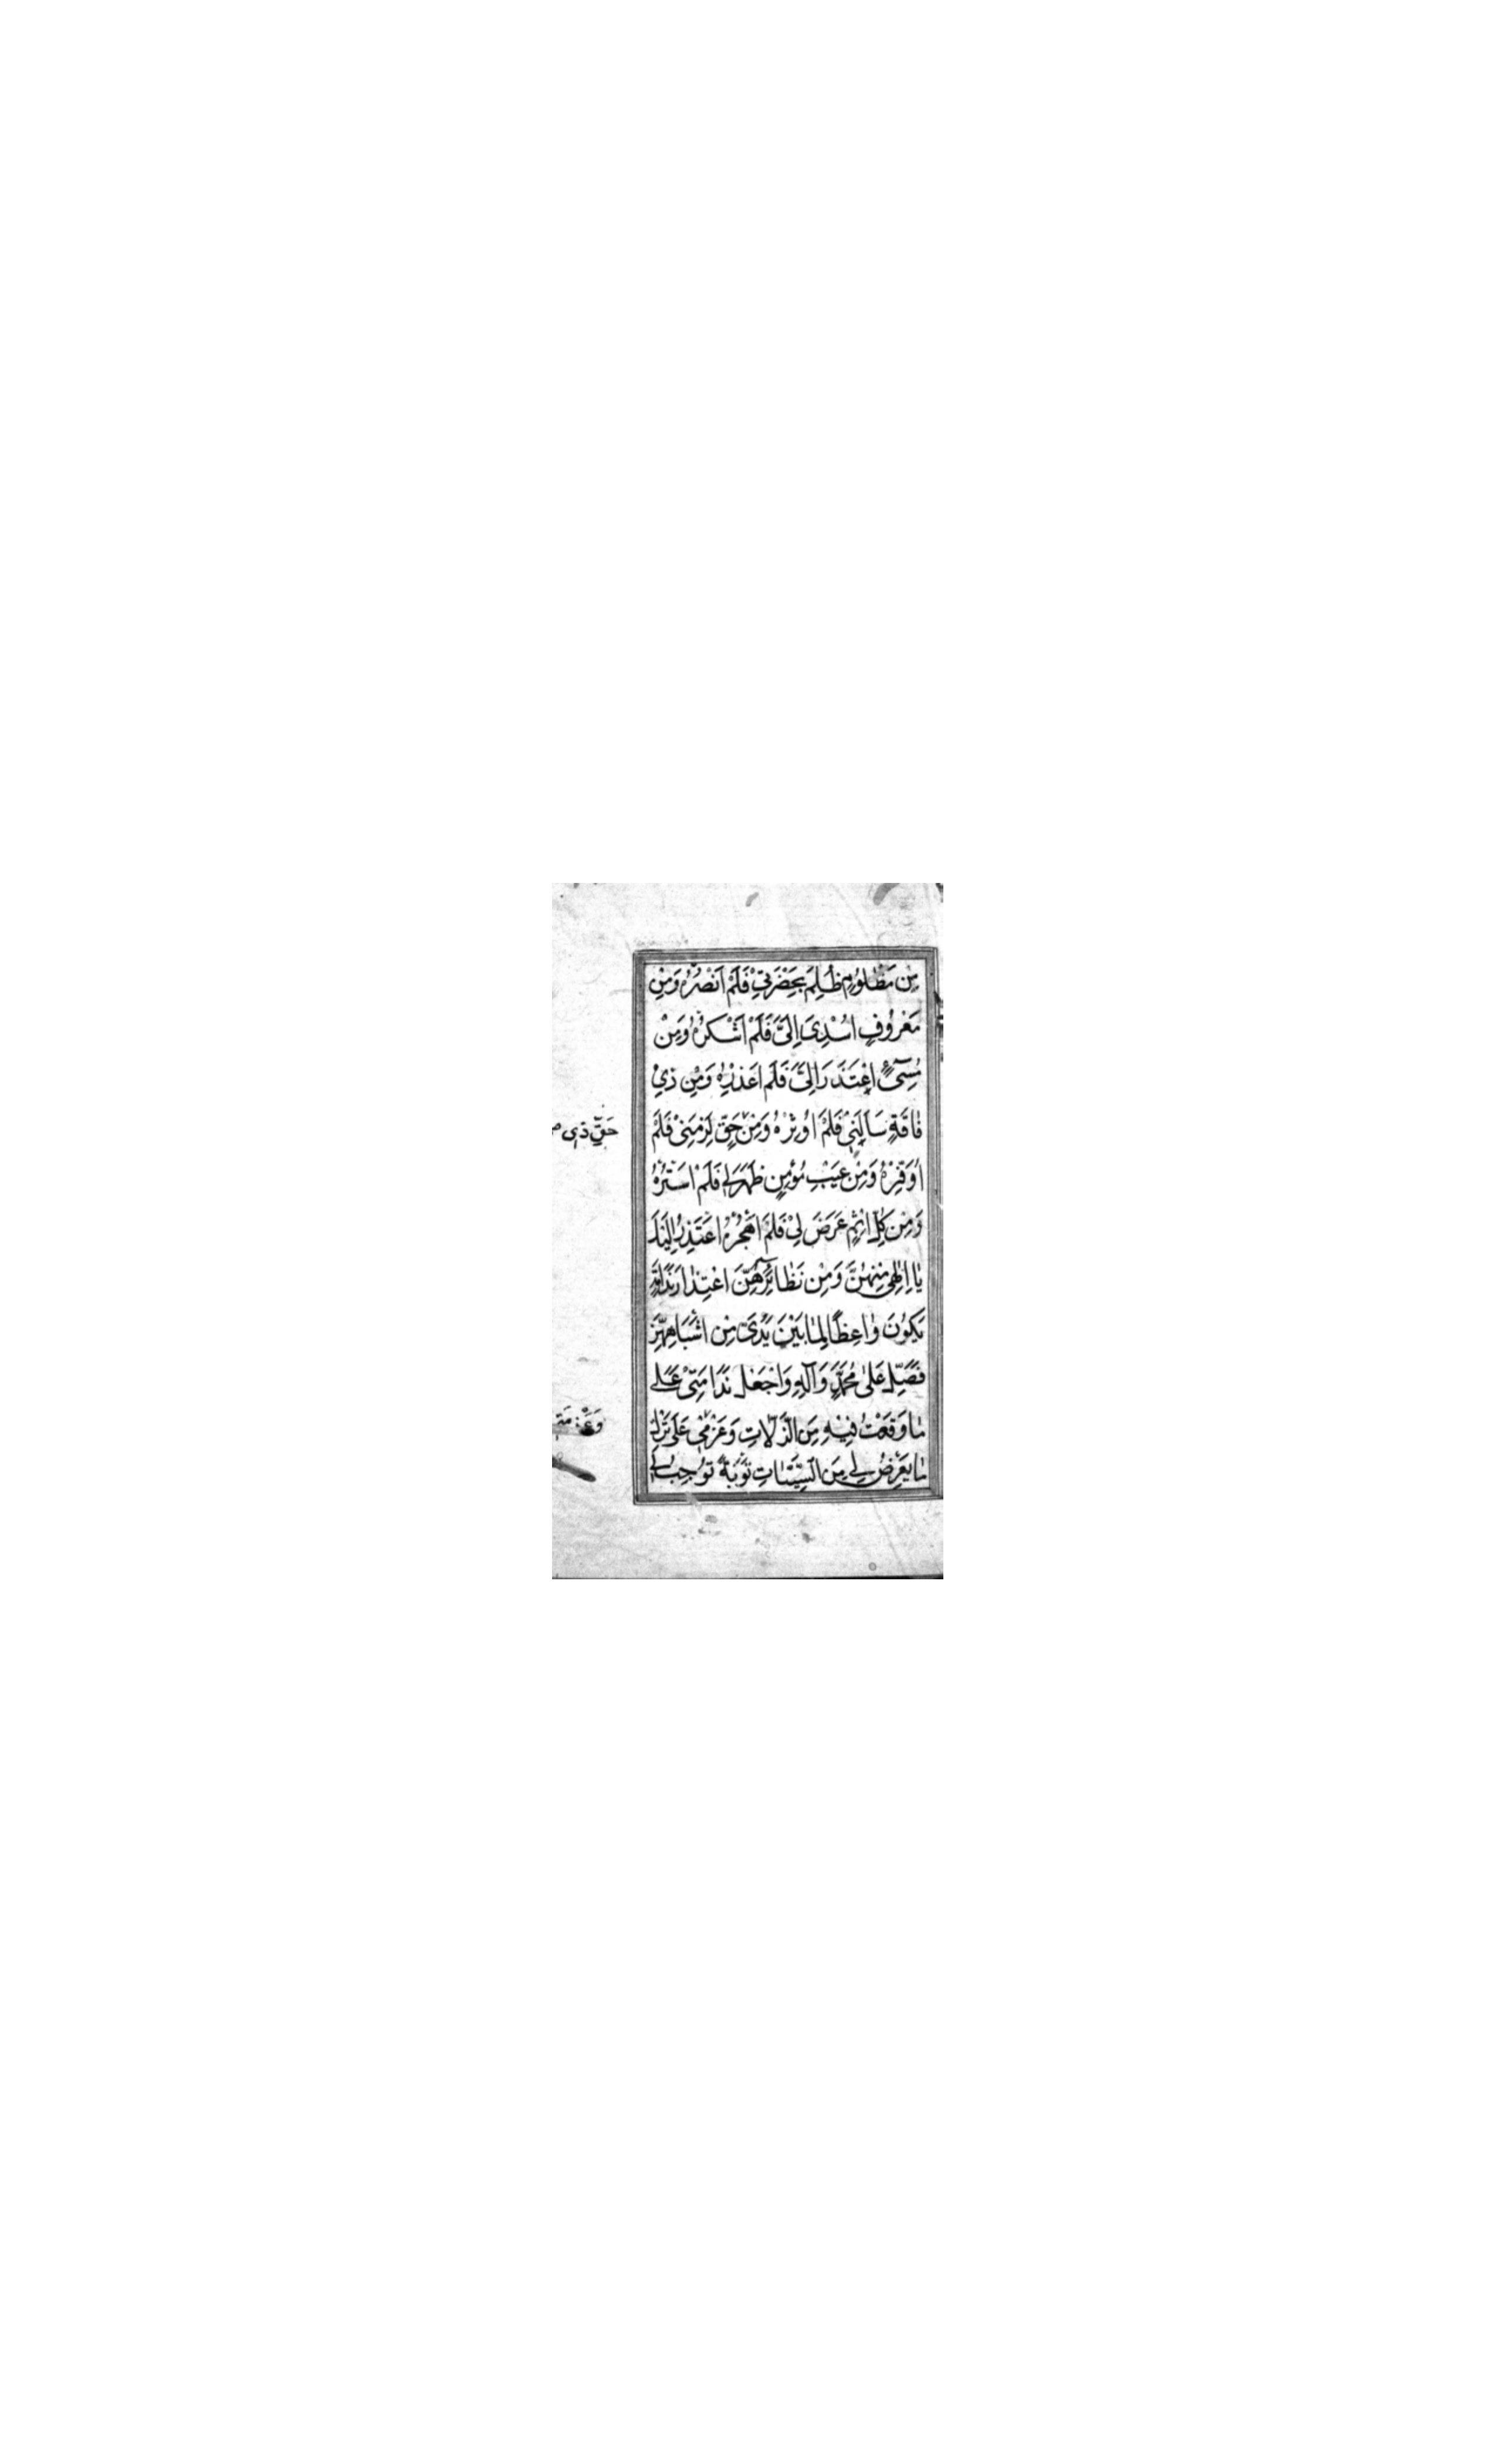 مِنْ مَظْلُومٍ ظُلِمَ بِحَضْرَتِي فَلَمْ اَنْصُرْهُ وَمِنْ
مَعْرُوفٍ اُسْدِيَ اِلَيَّ فَلَمْ اَشْكُرْهُ وَمِنْ
مُسِيءٍ اعْتَذَرَ اِلَيَّ فَلَمْ اَعْذِرْهُ وَمِنْ ذِي
فَاقَةٍ سَاَلَنِي فَلَمْ اُوثِرْهُ وَمِنْ حَقٍّ لَزِمَنِي فَلَمْ
حَقِّ ذِي
اُوَفِّرْهُ وَمِنْ عَيْبِ مُؤْمِنٍ ظَهَرَ لِي فَلَمْ اَسْتُرْهُ
وَمِنْ كُلِّ اِثْمٍ عَرَضَ لِي فَلَمْ اَهْجُرْهُ اَعْتَذِرُ اِلَيْكَ
يَا اِلٰهِي مِنْهُنَّ وَمِنْ نَظَائِرِهِنَّ اعْتِذَارَ نَدَامَةٍ
يَكُونُ وَاعِظًا لِمَا بَيْنَ يَدَيَّ مِنْ اَشْبَاهِهِنَّ
فَصَلِّ عَلَى مُحَمَّدٍ وَآلِهِ وَاجْعَلْ نَدَامَتِي عَلَى
مَا وَقَعْتُ فِيهِ مِنَ الزَّلَّاتِ وَعَزْمِي عَلَى تَرْكِ
مَا يَعْرِضُ لِي مِنَ السَّيِّئَاتِ تَوْبَةً تُوجِبُ لِي